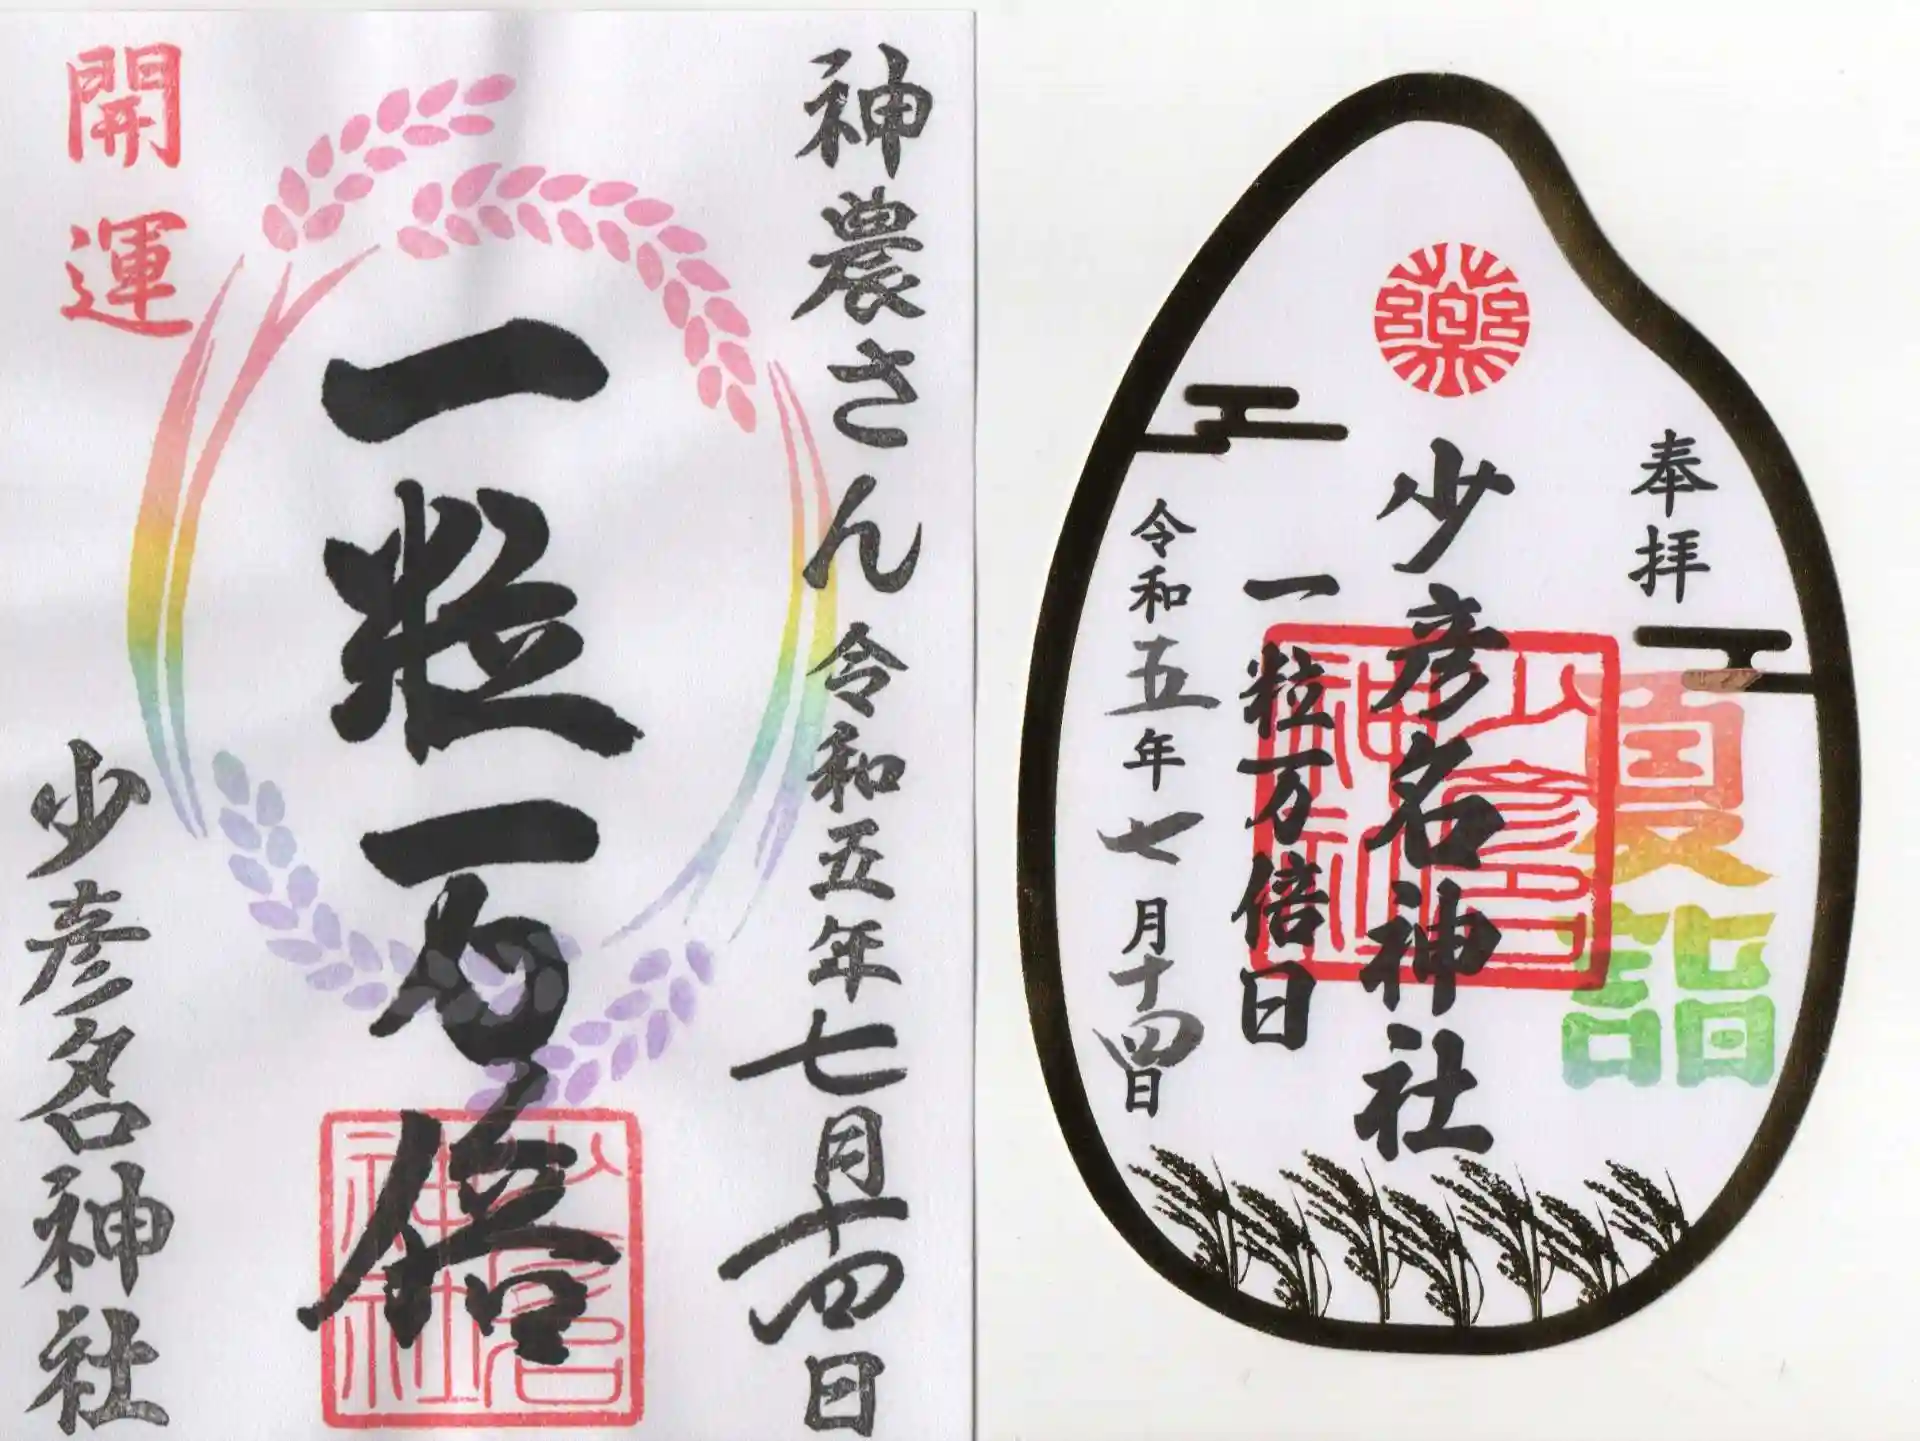 神農さん 令和五年七月十四日
一粒万倍
少彦名神社
開運
少彦名神社
薬
奉拝
夏詣
少彦名神社
一粒万倍日
令和五年七月十四日
少彦名神社